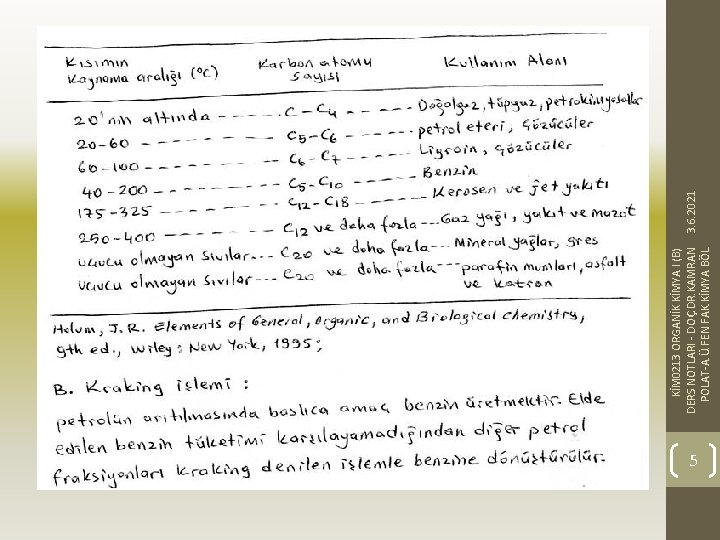 Kısımın Kaynama aralığı (°C) Karbon atomu sayısı Kullanım Alanı
20'nin altında - - - - - - C–C4 - - - - Doğalgaz, tüpgaz, petrokimyasallar
20-60 - - - - - - C5–C6 - - - - petrol eteri, çözücüler
60-100 - - - - - - C6–C7 - - - - Ligroin, çözücüler
40-200 - - - - - - C5–C10 - - - - Benzin
175-325 - - - - - - C12–C18 - - - - Kerosen ve jet yakıtı
250-400 - - - - - - C12 ve daha fazla - - - Gaz yağı, yakıt ve mazot
uçucu olmayan sıvılar - - - C20 ve daha fazla - - - Mineral yağlar, gres
uçucu olmayan sıvılar - - - C20 ve daha fazla - - - parafin mumları, asfalt
ve katran
Holum, J. R. Elements of General, Organic, and Biological chemistry,
9th ed., Wiley: New York, 1995;
B. Kraking işlemi :
petrolün arıtılmasında başlıca amaç benzin üretmektir. Elde
edilen benzin tüketimi karşılayamadığından diğer petrol
fraksiyonları kraking denilen işlemle benzine dönüştürülür.
KİM0213 ORGANİK KİMYA I (B)
DERS NOTLARI - DOÇ.DR.KAMRAN
POLAT-A.Ü.FEN FAK KİMYA BÖL
3.6.2021
5